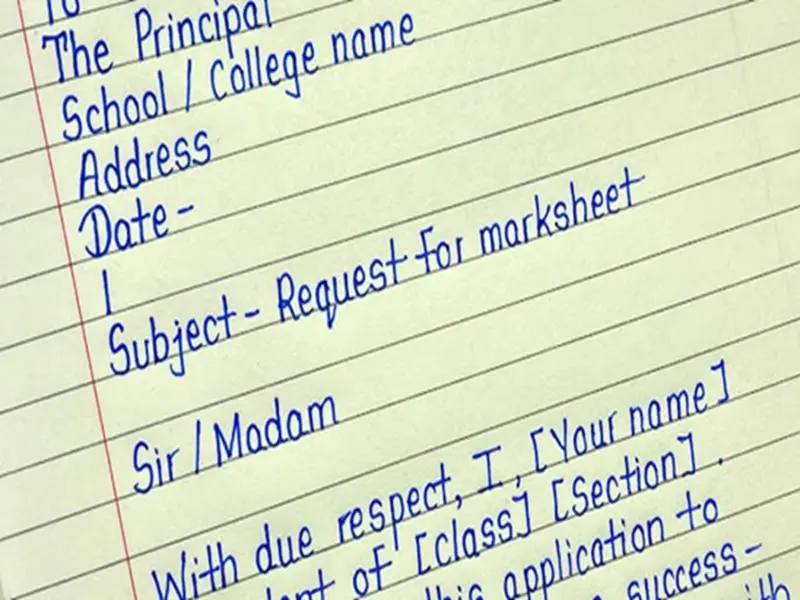 To
The Principal
School / College name
Address
Date -
Subject - Request for marksheet
Sir / Madam
With due respect, I, [Your name]
of [class] [Section].
application to
success-